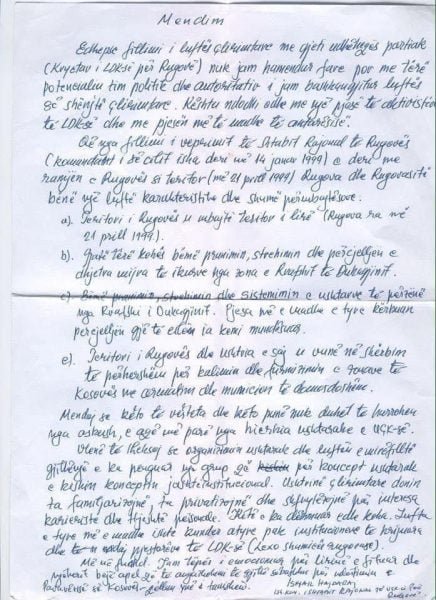 Mendim
Edhepse fillimi i luftës çlirimtare me gjeti udhëheqës partiak
(Kryetar i LDK-së për Rugovë) nuk jam hamendur fare por me tërë
potencialin tim politik dhe autoritativ i jam bashkangjitur luftës
së shenjtë çlirimtare. Kështu ndodhi edhe me një pjesë të aktivistëve
të LDK-së dhe me pjesën më të madhe të anëtarësisë.
Që nga fillimi i veprimit të Shtabit Rajonal të Rugovës
(komandant i së cilit isha deri më 14 janar 1999) e deri me
ramjen e Rugovës si teritor (më 21 prill 1999) Rugova dhe Rugovasit
bënë një luftë karakteristike dhe shumë përmbajtësore.
a). Teritori i Rugovës u mbajtë teritor i lirë (Rugova ra më
21 prill 1999).
b). Gjatë tërë kohës bëmë pranimin, strehimin dhe përcjelljen e
dhjetra mijra të ikurve nga zona e Rrafshit të Dukagjinit.
c) Bëmë pranimin, strehimin dhe sistemimin e ushtarve të
nga Rrafshi i Dukagjinit. Pjesa më e madhe e tyre kërkuan
përcjelljen gjë të cilën ia kemi mundësuar.
e). Teritori i Rugovës dhe ushtria e saj u vunë në shërbim
të përhershëm për kalimin dhe furnizimin e zonave të
Kosovës me armatim dhe municion të domosdoshëm.
Mendoj se këto të vërteta dhe këto punë nuk duhet të harrohen
nga askush, e aqë më parë nga hierarkia ushtarake e UÇK-së.
Vlenë të theksoj se organizimin ushtarak dhe luftën e mirëfilltë
gjithnjë e ka penguar një grup që për koncept ushtarak
e kishin konceptin jashtëinstitucional. Ushtrinë çlirimtare donin
ta familjarizojnë, ta privatizojnë dhe shfrytëzojnë për interesa
karieriste dhe thjeshtë personale. Këtë e ka dëshmuar edhe koha. Lufta
e tyre më e madhe ishte kundër atyre pak institucioneve të krijuara
dhe të pjestarëve të LDK-së (Lexo shumicës rugovase).
Më në fund. Jam tepër i emocionuar për lirinë e fituar dhe
bëjë apel që të angazhohemi të gjithë sëbashku për
e Kosovës
Ismail Haradinaj